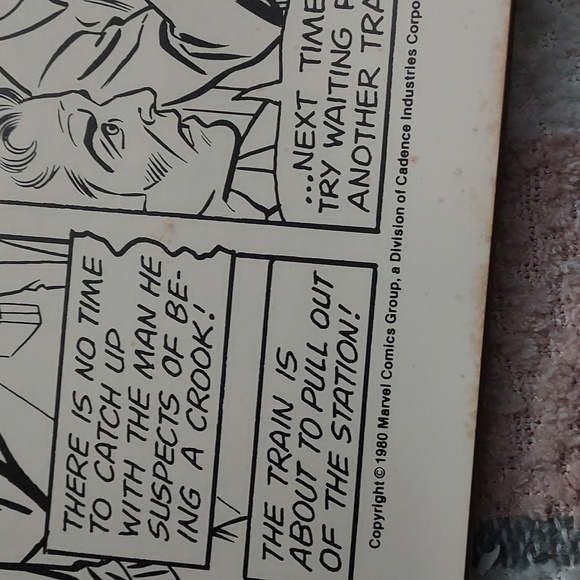 THERE IS NO TIME
TO CATCH UP
WITH THE MAN HE
SUSPECTS OF BE-
ING A CROOK!
THE TRAIN IS
ABOUT TO PULL OUT
OF THE STATION!
...NEXT TIME
TRY WAITING
ANOTHER TRA
Copyright © 1980 Marvel Comics Group, a Division of Cadence Industries Corpo